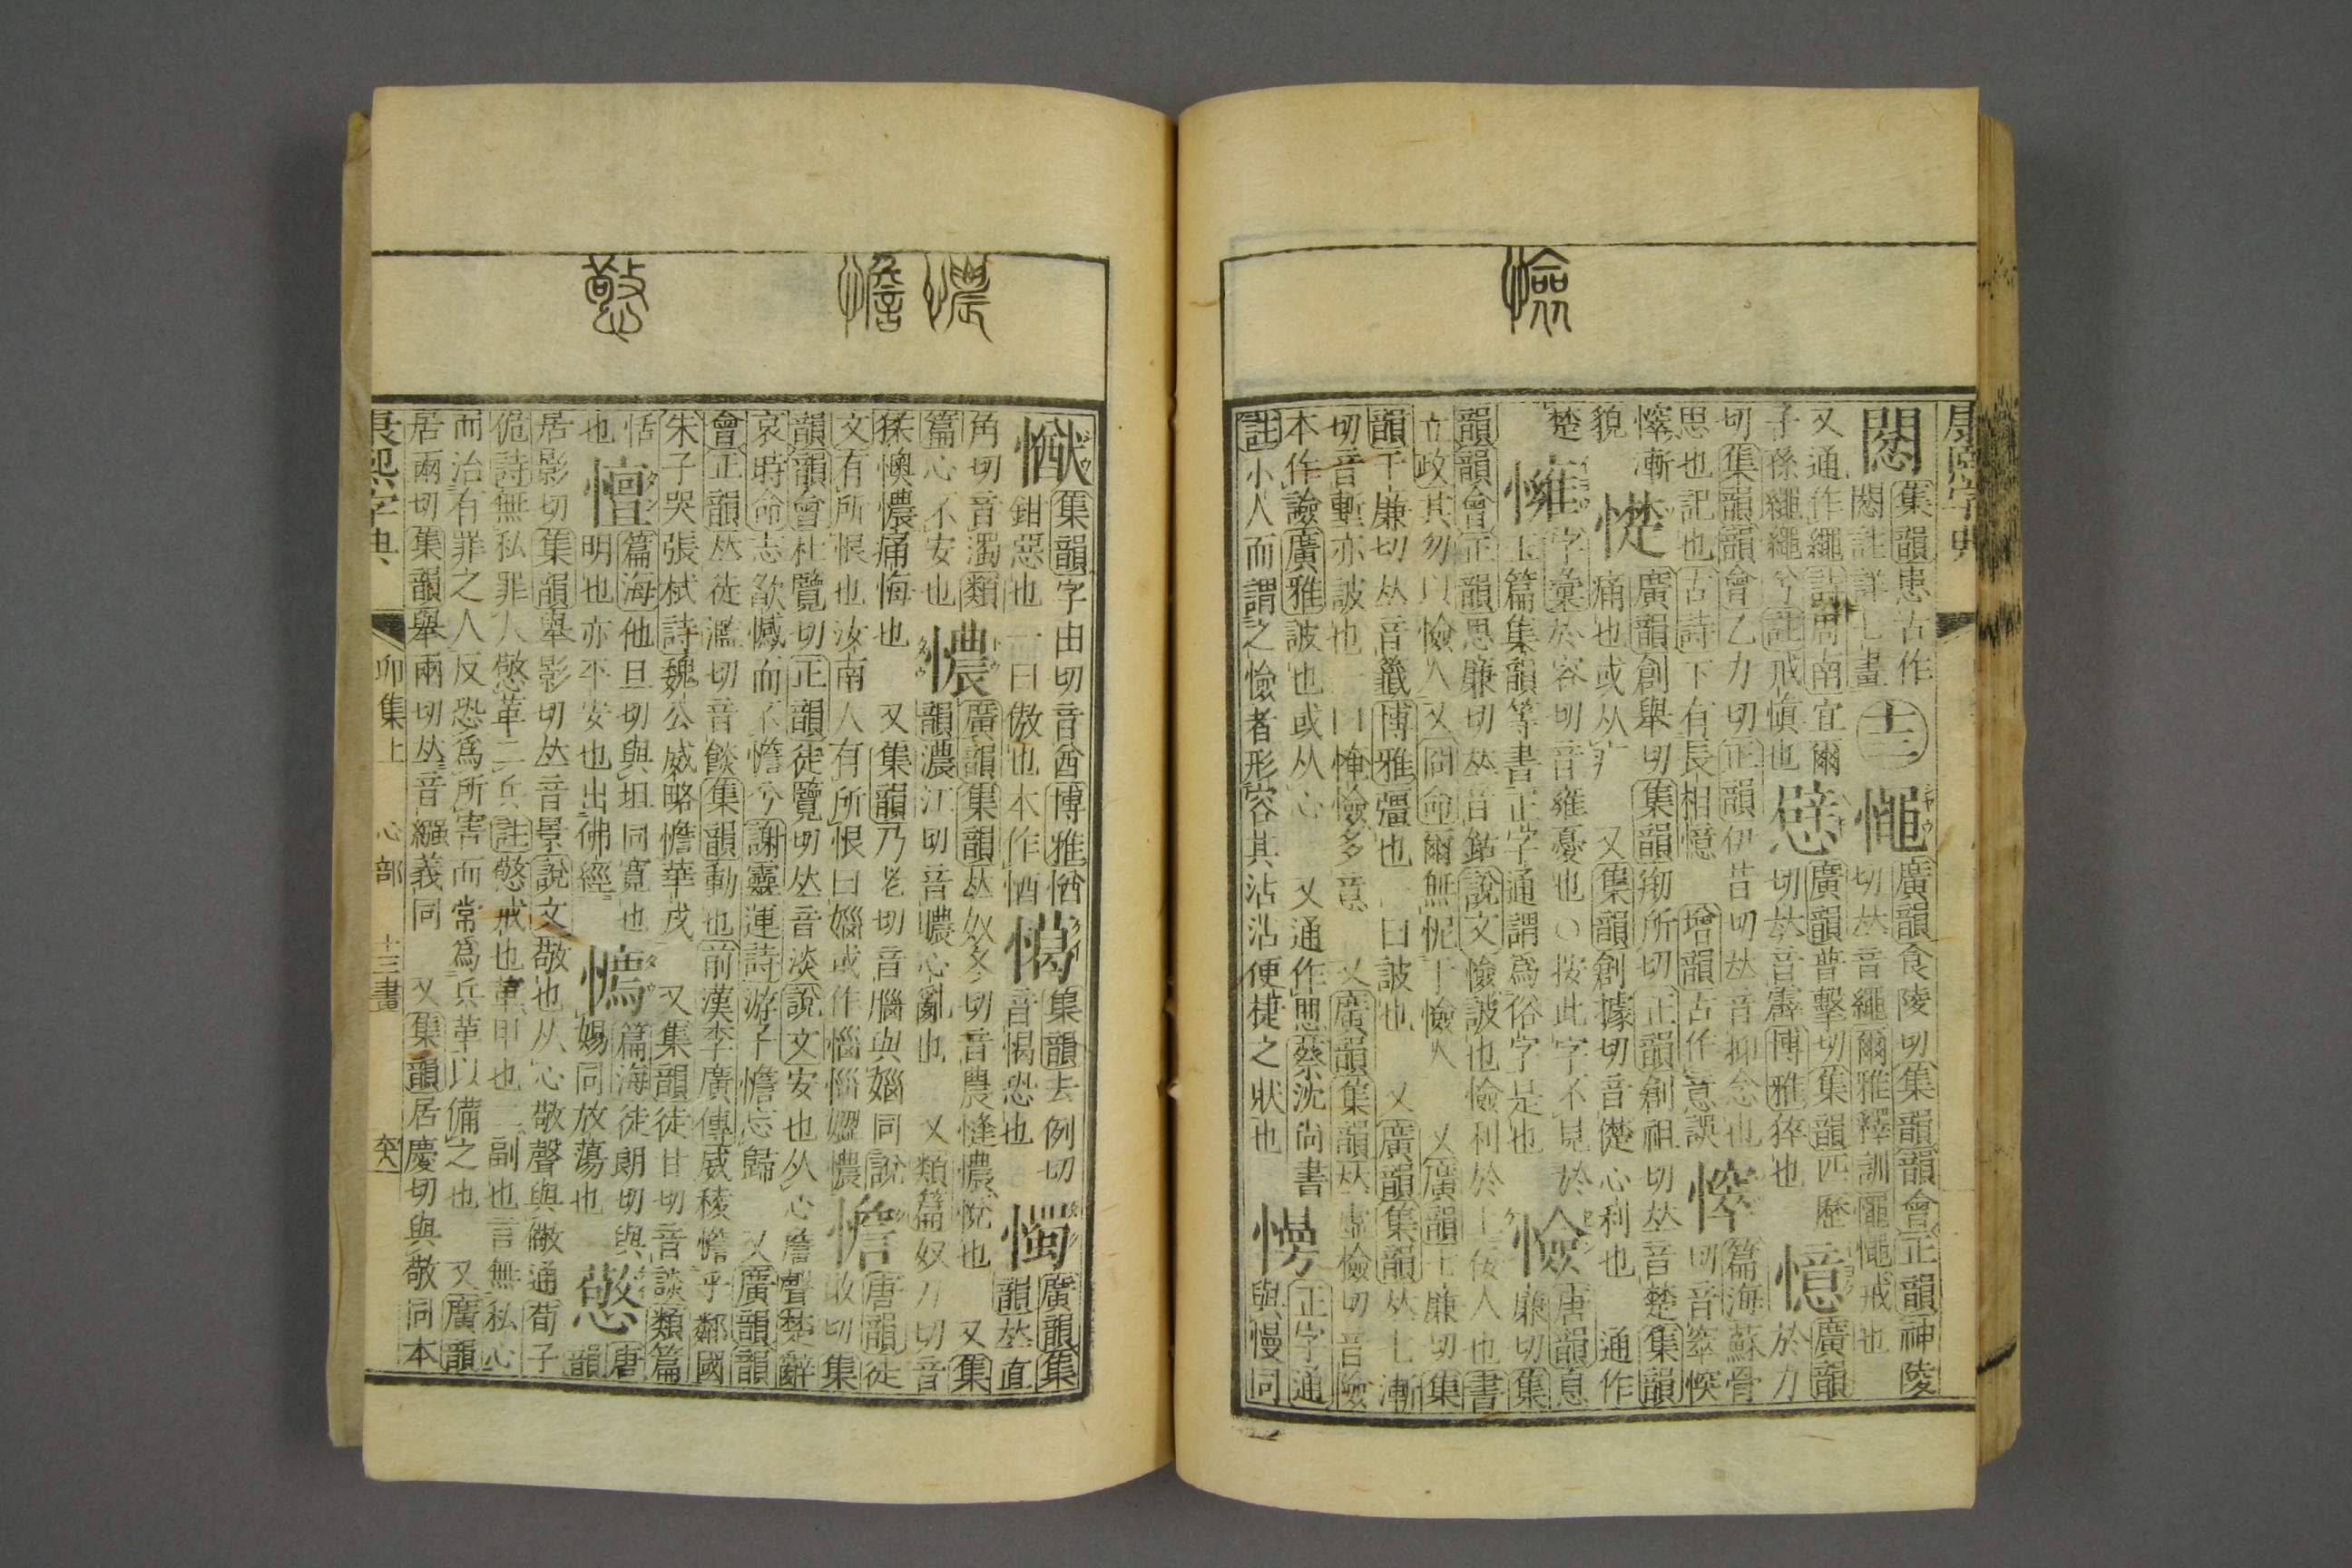 康熙字典
憸
閿
集韻患古作
閿註詳七畫
十三
憴
廣韻食陵切集韻韻會正韻神陵
切𠀤音繩爾雅釋訓憴憴戒也
又通作繩詩周南宜爾
子孫繩繩兮註戒愼也
憵
廣韻普擊切集韻匹歷
切𠀤音霹博雅猝也
憶
廣韻
於力
切集韻韻會乙力切正韻伊昔切𠀤音抑念也
思也記也古詩下有長相憶 增韻古作意誤
窸
篇海蘇骨
切音窣
憷
廣韻創舉切集韻剏所切正韻創祖切𠀤音楚集韻
痛也或从疒 又集韻創據切音儊心利也 通作
楚
字彙於容切音雍憂也○按此字不見於
玉篇集韻等書正字通謂爲俗字是也
憸
唐韻息
廉切集
韻韻會正韻思廉切𠀤音銛說文憸詖也憸利於上佞人也書
立政其勿以憸人又冏命爾無昵于憸人 又廣韻七廉切集
韻千廉切𠀤音籤博雅彊也一曰詖也 又廣韻集韻𠀤七漸
切音塹亦詖也一曰憸多意 又廣韻集韻𠀤虛檢切音險
本作譣廣雅詖也或从心 又通作思蔡沈尚書
註小人而謂之憸者形容其沾沾便捷之狀也
正字通
與慢同
憼 憺 憹
集韻字由切音酋博雅
鉗惡也一曰傲也本作
愒
集韻去例切
音愒恐也
憪
廣韻集
韻𠀤直
角切音濁類
篇心不安也
憹
廣韻集韻𠀤奴冬切音農㦀憹悅也 又集
韻濃江切音噥心亂也 又類篇奴刀切音
猱懊憹痛悔也 又集韻乃老切音腦與㛴同說
文有所恨也汝南人有所恨曰㛴或作惱憹
憺
唐韻徒
敢切集
韻韻會杜覽切正韻徒覽切𠀤音淡說文安也从心詹聲楚辭
哀時命志欿憾而不憺兮謝靈運詩游子憺忘歸 又廣韻韻
會正韻𠀤徒濫切音餤集韻動也前漢李廣傳威稜憺乎鄰國
朱子哭張栻詩魏公威略憺華戎 又集韻徒甘切音談類篇
恬
也
憻
篇海他旦切與坦同寬也
明也亦平安也出佛經
篇海徒朗切與
婸同放蕩也
憼
唐
韻
居影切集韻舉影切𠀤音景說文敬也从心敬聲與儆通荀子
佹詩無私罪人憼革二兵註憼戒也革甲也二副也言無私心
而治有罪之人反恐爲所害而常爲兵革以備之也 又廣韻
居兩切集韻舉兩切𠀤音繦義同 又集韻居慶切與敬同本
康熙字典 卯集上 心部 十三畫